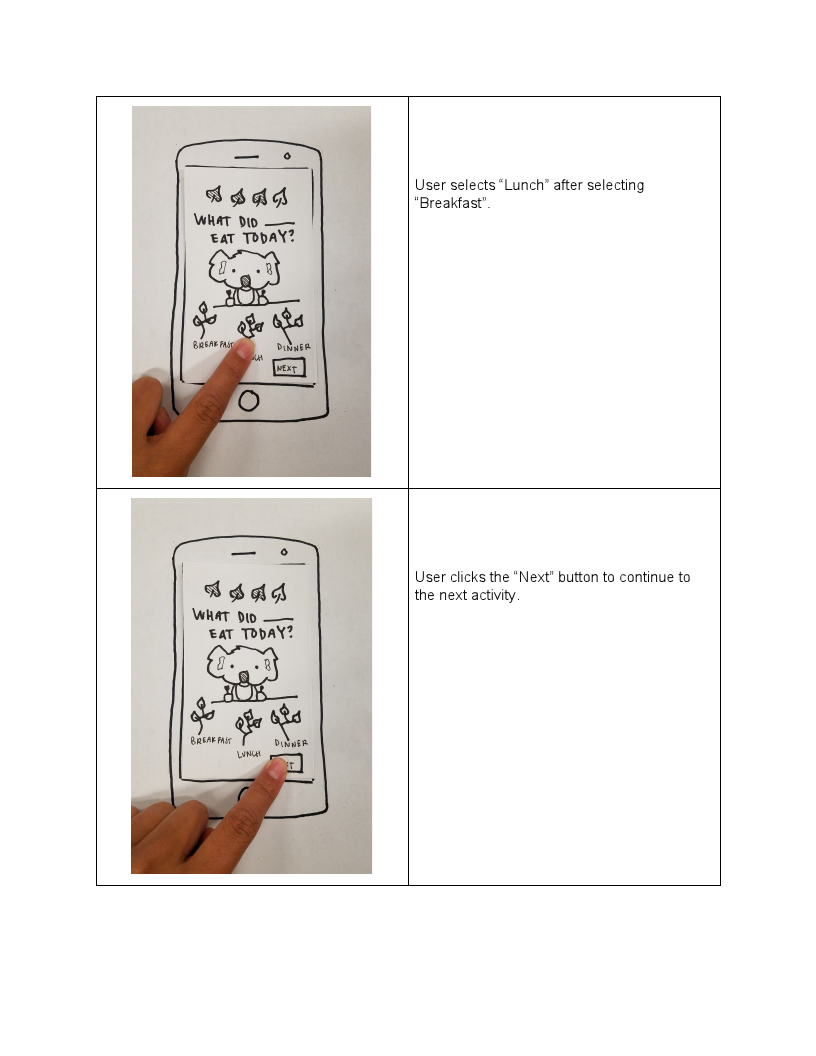 WHAT DID ____
EAT TODAY?
BREAKFAST
DINNER
NEXT
User selects “Lunch” after selecting
“Breakfast”.
WHAT DID ____
EAT TODAY?
BREAKFAST
LUNCH
DINNER
User clicks the “Next” button to continue to
the next activity.